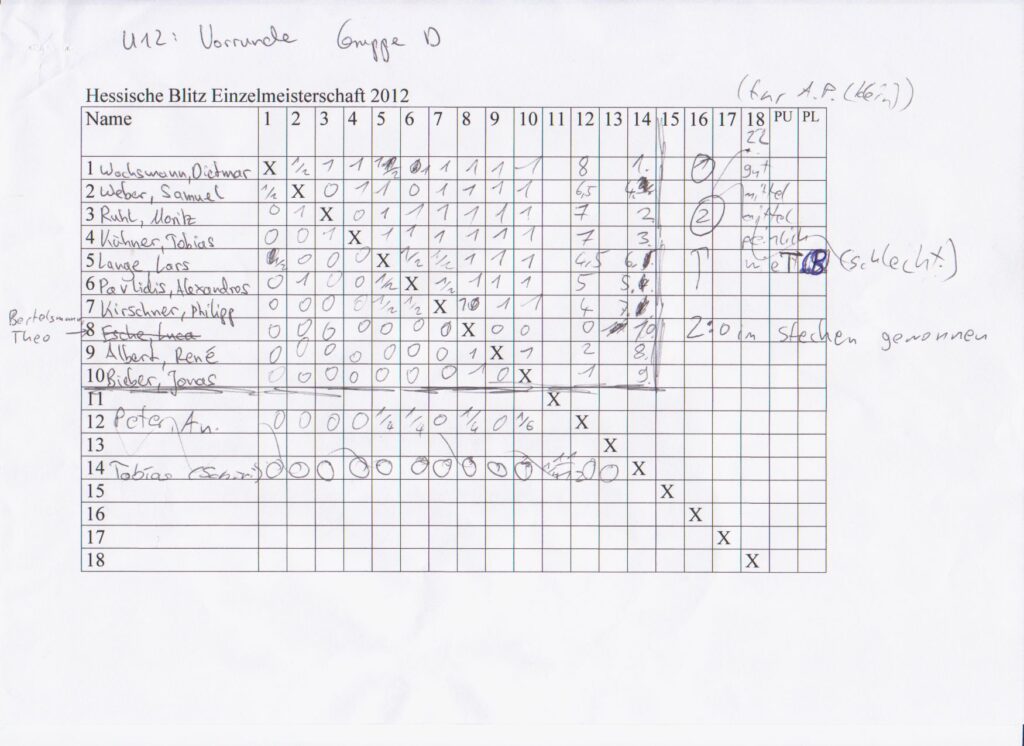 U12: Vorrunde Gruppe D
(nur A.P. (klein))
Hessische Blitz Einzelmeisterschaft 2012
Name 1 2 3 4 5 6 7 8 9 10 11 12 13 14 15 16 17 18 PU PL
22
1 Wachsmann, Dietmar X 1/2 1 1 1 1 1 1 1 8 1. 1 gut
2 Weber, Samuel 1/2 X 0 1 1 0 1 1 1 1 6,5 4. mittel
3 Ruhl, Moritz 0 1 X 0 1 1 1 1 1 1 7 2. 2 mittel
4 Kühner, Tobias 0 0 1 X 1 1 1 1 1 1 7 3. peinlich
5 Lange, Lars 1/2 0 0 0 X 1/2 1/2 1 1 1 4,5 6. (schlecht.)
6 Pavlidis, Alexandros 0 1 0 0 1/2 X 1/2 1 1 1 5 5.
7 Kirschner, Philipp 0 0 0 0 1/2 1/2 X 1 1 1 4 7.
Theo 8 Esche, Luca 0 0 0 0 0 0 0 X 0 0 0 10. 2:0 im stechen gewonnen
9 Albert, René 0 0 0 0 0 0 0 1 X 1 2 8.
10 Bieber, Jonas 0 0 0 0 0 0 0 1 0 X 1 9.
11 X
12 Peter, An. 0 0 0 0 1/4 1/4 0 1/4 0 1/6 X
13 X
14 Tobias 0 0 0 0 0 0 0 0 0 0 0 0 X
15 X
16 X
17 X
18 X